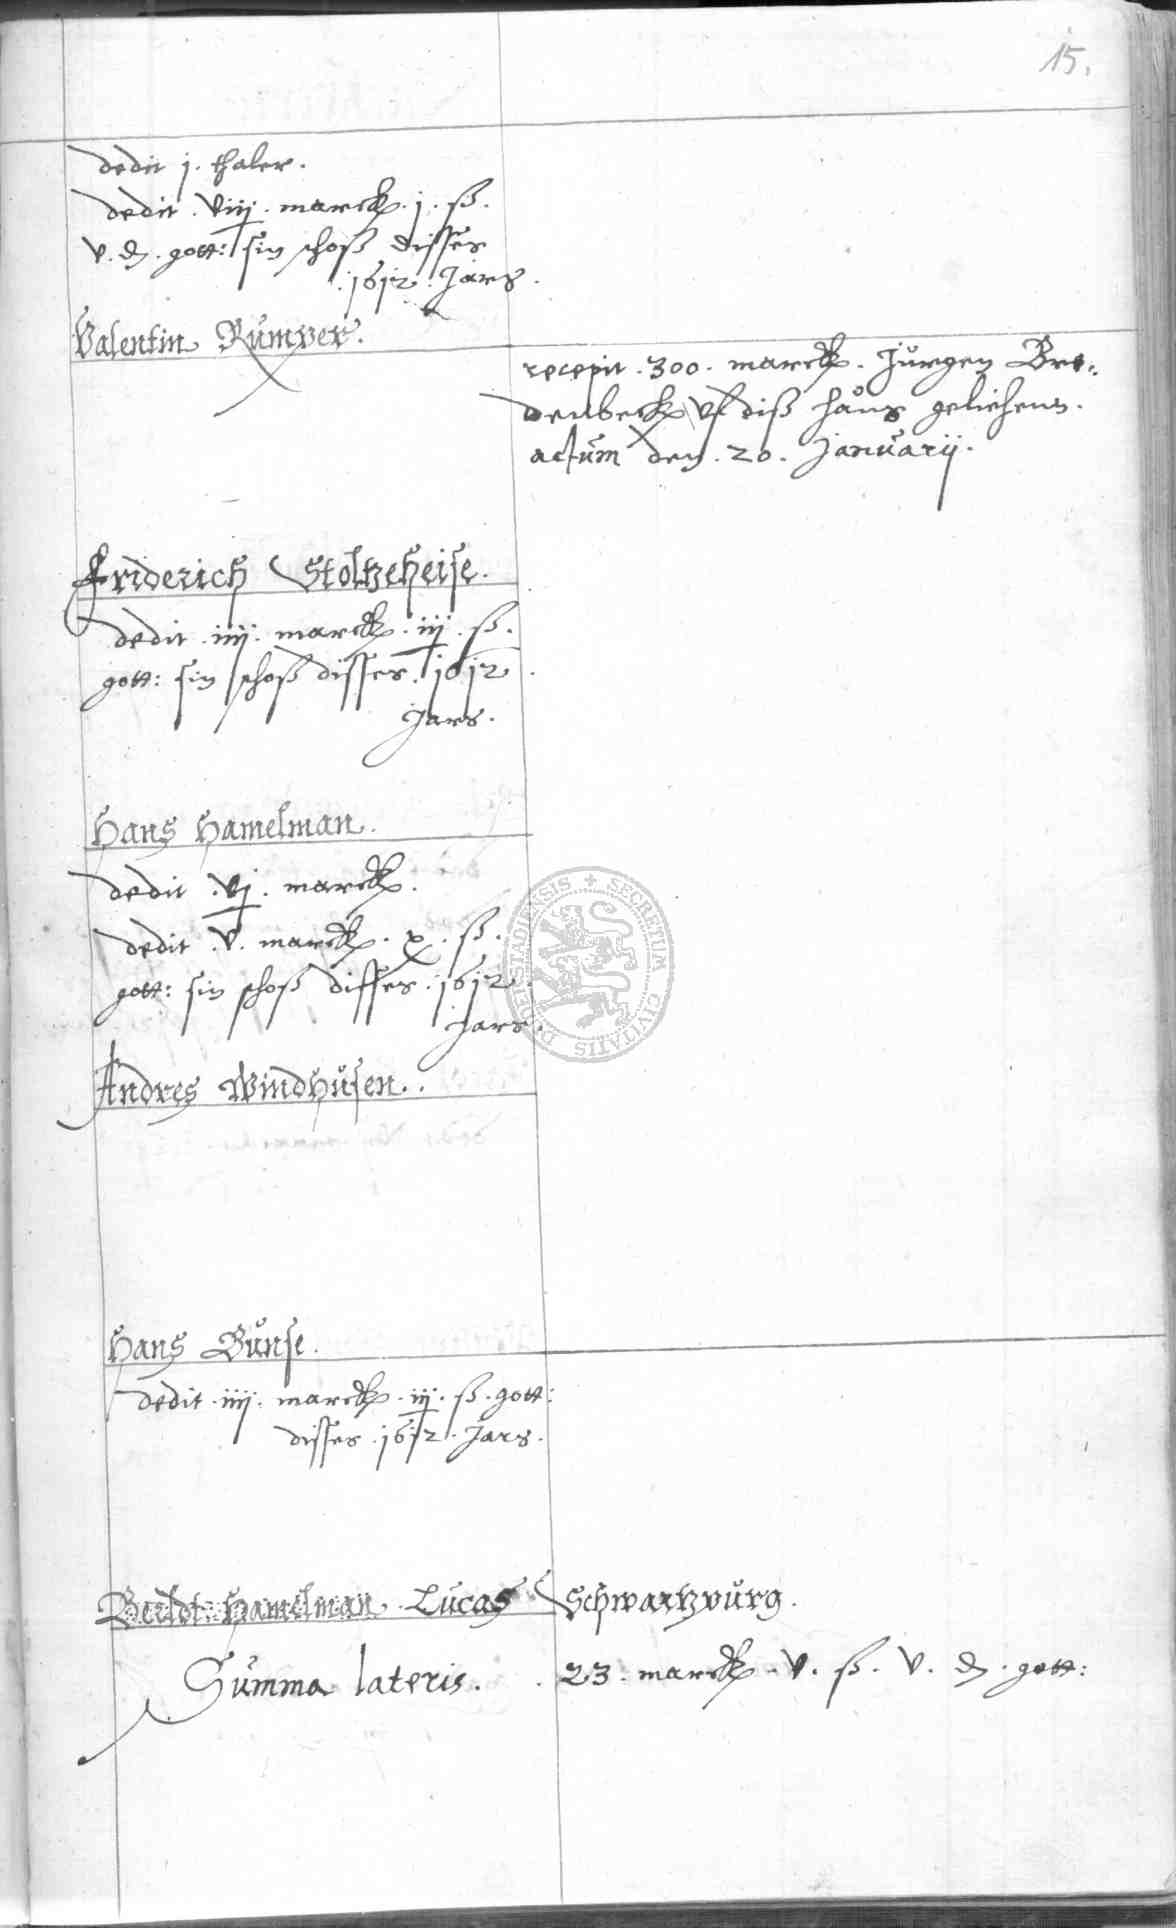 15.
dedit j. thaler.
dedit . viij . marck . j . ß .
v . ₰ . gott: sin schoß disses
. 1612 . Jars .
Valentin Rumver .
recepit . 300 . marck . Jürgen Bre-
denbeck vf diß haus geliehens .
actum den . 20 . Januarij .
Friderich Stoltzeheise .
dedit . iiij . marck . iij . ß .
gott: sin schoß disses . 1612 .
Jars .
Hans Hamelman .
dedit . vj . marck .
dedit . v . marck . x . ß .
gott: sin schoß disses . 1612 .
Jars .
Andres Windhusen . .
Hans Bunse .
dedit . iiij . marck . iij . ß . gott:
disses . 1612 . Jars .
Hamelman . Lucas Schwartzburg .
Summa lateris . . 23 . marck . v . ß . v . ₰ . gott:
SECRETUM CIVITATIS